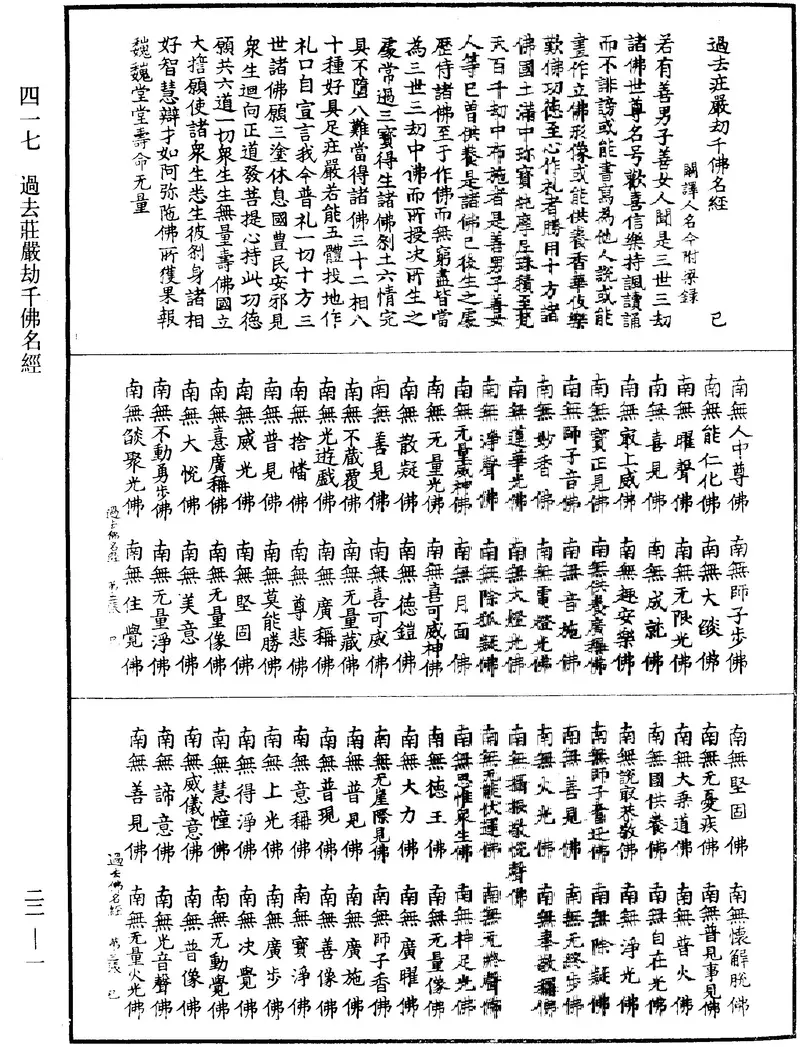 過去莊嚴劫千佛名經 己
闕譯人名今附梁錄
若有善男子善女人聞是三世三劫
諸佛世尊名号歡喜信樂持諷讀誦
而不誹謗或能書寫為他人說或能
畫作立佛形像或能供養香華伎樂
歎佛功德至心作礼者勝用十方諸
佛國土滿中珎寶純摩尼珠積至梵
天百千劫中布施者是善男子善女
人等已曾供養是諸佛已後生之處
歷侍諸佛至于作佛而無窮盡皆當
為三世三劫中佛而所授決所生之
處常遇三寶得生諸佛剎土六情完
具不墮八難當得諸佛三十二相八
十種好具足莊嚴若能五體投地作
礼口自宣言我今普礼一切十方三
世諸佛願三塗休息國豊民安邪見
衆生迴向正道發菩提心持此功德
願共六道一切衆生生無量壽佛國立
大擔願使諸衆生悉生彼剎身諸相
好智慧辯才如阿弥陁佛所獲果報
巍巍堂堂壽命无量
南無人中尊佛 南無師子步佛
南無能仁化佛 南無大燄佛
南無曜聲佛 南無无限光佛
南無喜見佛 南無成就佛
南無㝡上威佛 南無趣安樂佛
南無寶正見佛 南無供養廣稱佛
南無師子音佛 南無音施佛
南無妙香佛 南無電燈光佛
南無蓮華光佛 南無大燈光佛
南無淨聲佛 南無除狐疑佛
南無无量威神佛 南無月面佛
南無无量光佛 南無喜可威神佛
南無散疑佛 南無德鎧佛
南無善見佛 南無喜可威佛
南無不蔵覆佛 南無无量蔵佛
南無光遊戯佛 南無廣稱佛
南無捨幡佛 南無尊悲佛
南無普見佛 南無莫能勝佛
南無威光佛 南無堅固佛
南無意廣稱佛 南無无量像佛
南無大悅佛 南無美意佛
南無不動勇步佛 南無无量淨佛
南無燄聚光佛 南無住覺佛
過去佛名經 第二張 己
南無堅固佛 南無懷解脫佛
南無无憂疾佛 南無普見事見佛
南無大乘道佛 南無普火佛
南無國供養佛 南無自在光佛
南無說㝡恭敬佛 南無淨光佛
南無師子奮迅佛 南無除疑佛
南無善見佛 南無无終步佛
南無火光佛 南無奉敬稱佛
南無攝根敬悅聲佛
南無无能伏運佛 南無无終聲佛
南無思惟衆生佛 南無神足光佛
南無德王佛 南無无量像佛
南無大力佛 南無廣曜佛
南無无崖際見佛 南無師子香佛
南無普見佛 南無廣施佛
南無普現佛 南無善像佛
南無意稱佛 南無寶淨佛
南無上光佛 南無廣步佛
南無得淨佛 南無決覺佛
南無慧幢佛 南無无動覺佛
南無威儀意佛 南無普像佛
南無諦意佛 南無光音聲佛
南無善見佛 南無无量火光佛
過去佛名經 第三張 己
四一七 過去莊嚴劫千佛名經
二二—一